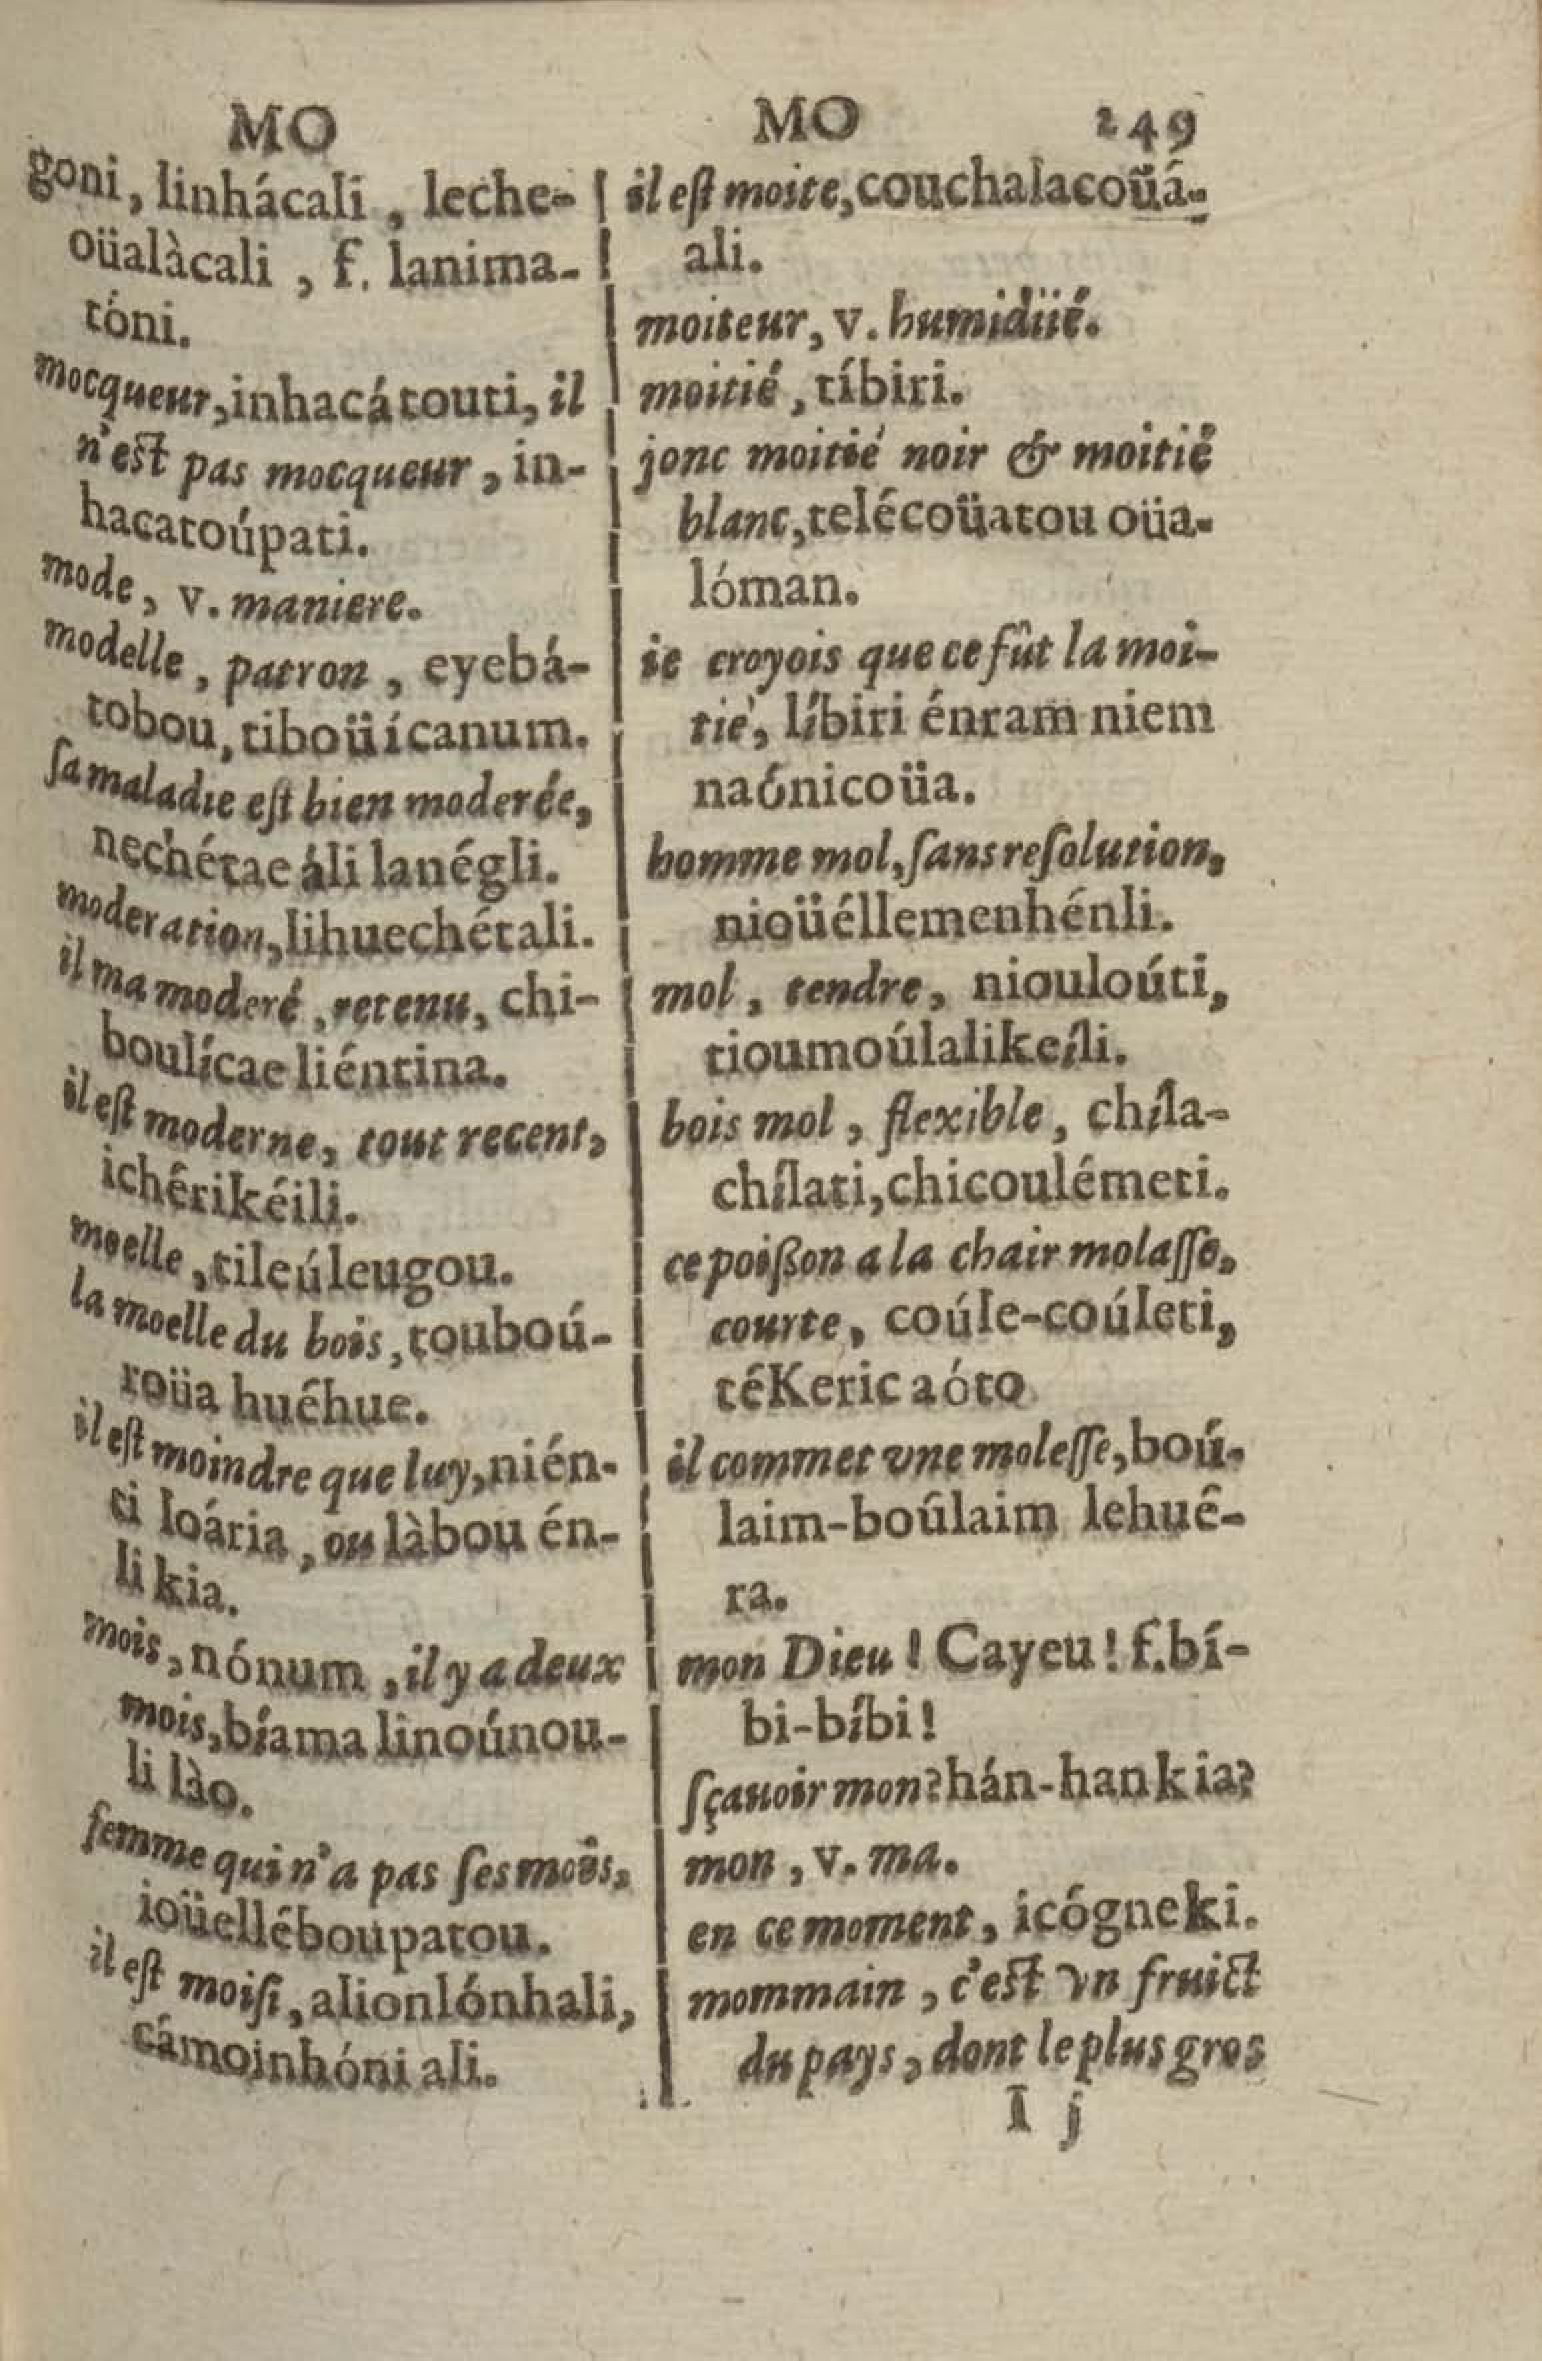 MO
goni, linhácali, leche-
oüalàcali, f. lanima-
tóni.
mocqueur, inhacátouti, il
n'est pas mocqueur, in-
hacatoúpati.
mode, v. maniere.
modelle, patron, eyebá-
tobou, tiboüícanum.
ſa maladie eſt bien moderée,
nechétae áli lanégli.
moderation, lihuechétali.
il ma moderé, retenu, chi-
boulícae liéntina.
il eſt moderne, tout recent,
ichêrikéili.
moelle, tileúleugou.
la moelle du bois, touboú-
roüa huéhue.
il eſt moindre que luy, nién-
ti loária, ou làbou én-
li kia.
mois, nónum, il y a deux
mois, bíama linoúnou-
li lào.
femme qui n'a pas ſes mois,
ioüelléboupatou.
il eſt moiſi, alionlónhali,
cámoinhóni ali.
MO 249
il eſt moite, couchalacoüá-
ali.
moiteur, v. humidité.
moitié, tíbiri.
jonc moitié noir & moitié
blanc, telécoüatou oüa-
lóman.
ie croyois que ce fût la moi-
tié, líbiri énram niem
naónicoüa.
homme mol, ſans reſolution,
nioüéllemenhénli.
mol, tendre, niouloúti,
tioumoúlalikeíli.
bois mol, flexible, chíla-
chílati, chicoulémeti.
ce poiſson a la chair molaſſe,
courte, coúle-coúleti,
téKeric aóto
il commet vne moleſſe, boú-
laim-boúlaim lehuê-
ra.
mon Dieu ! Cayeu ! f. bí-
bi-bíbi !
ſçauoir mon? hán-han kia?
mon, v. ma.
en ce moment, icógneki.
mommain, c'est vn fruict
du pays, dont le plus gros
I j